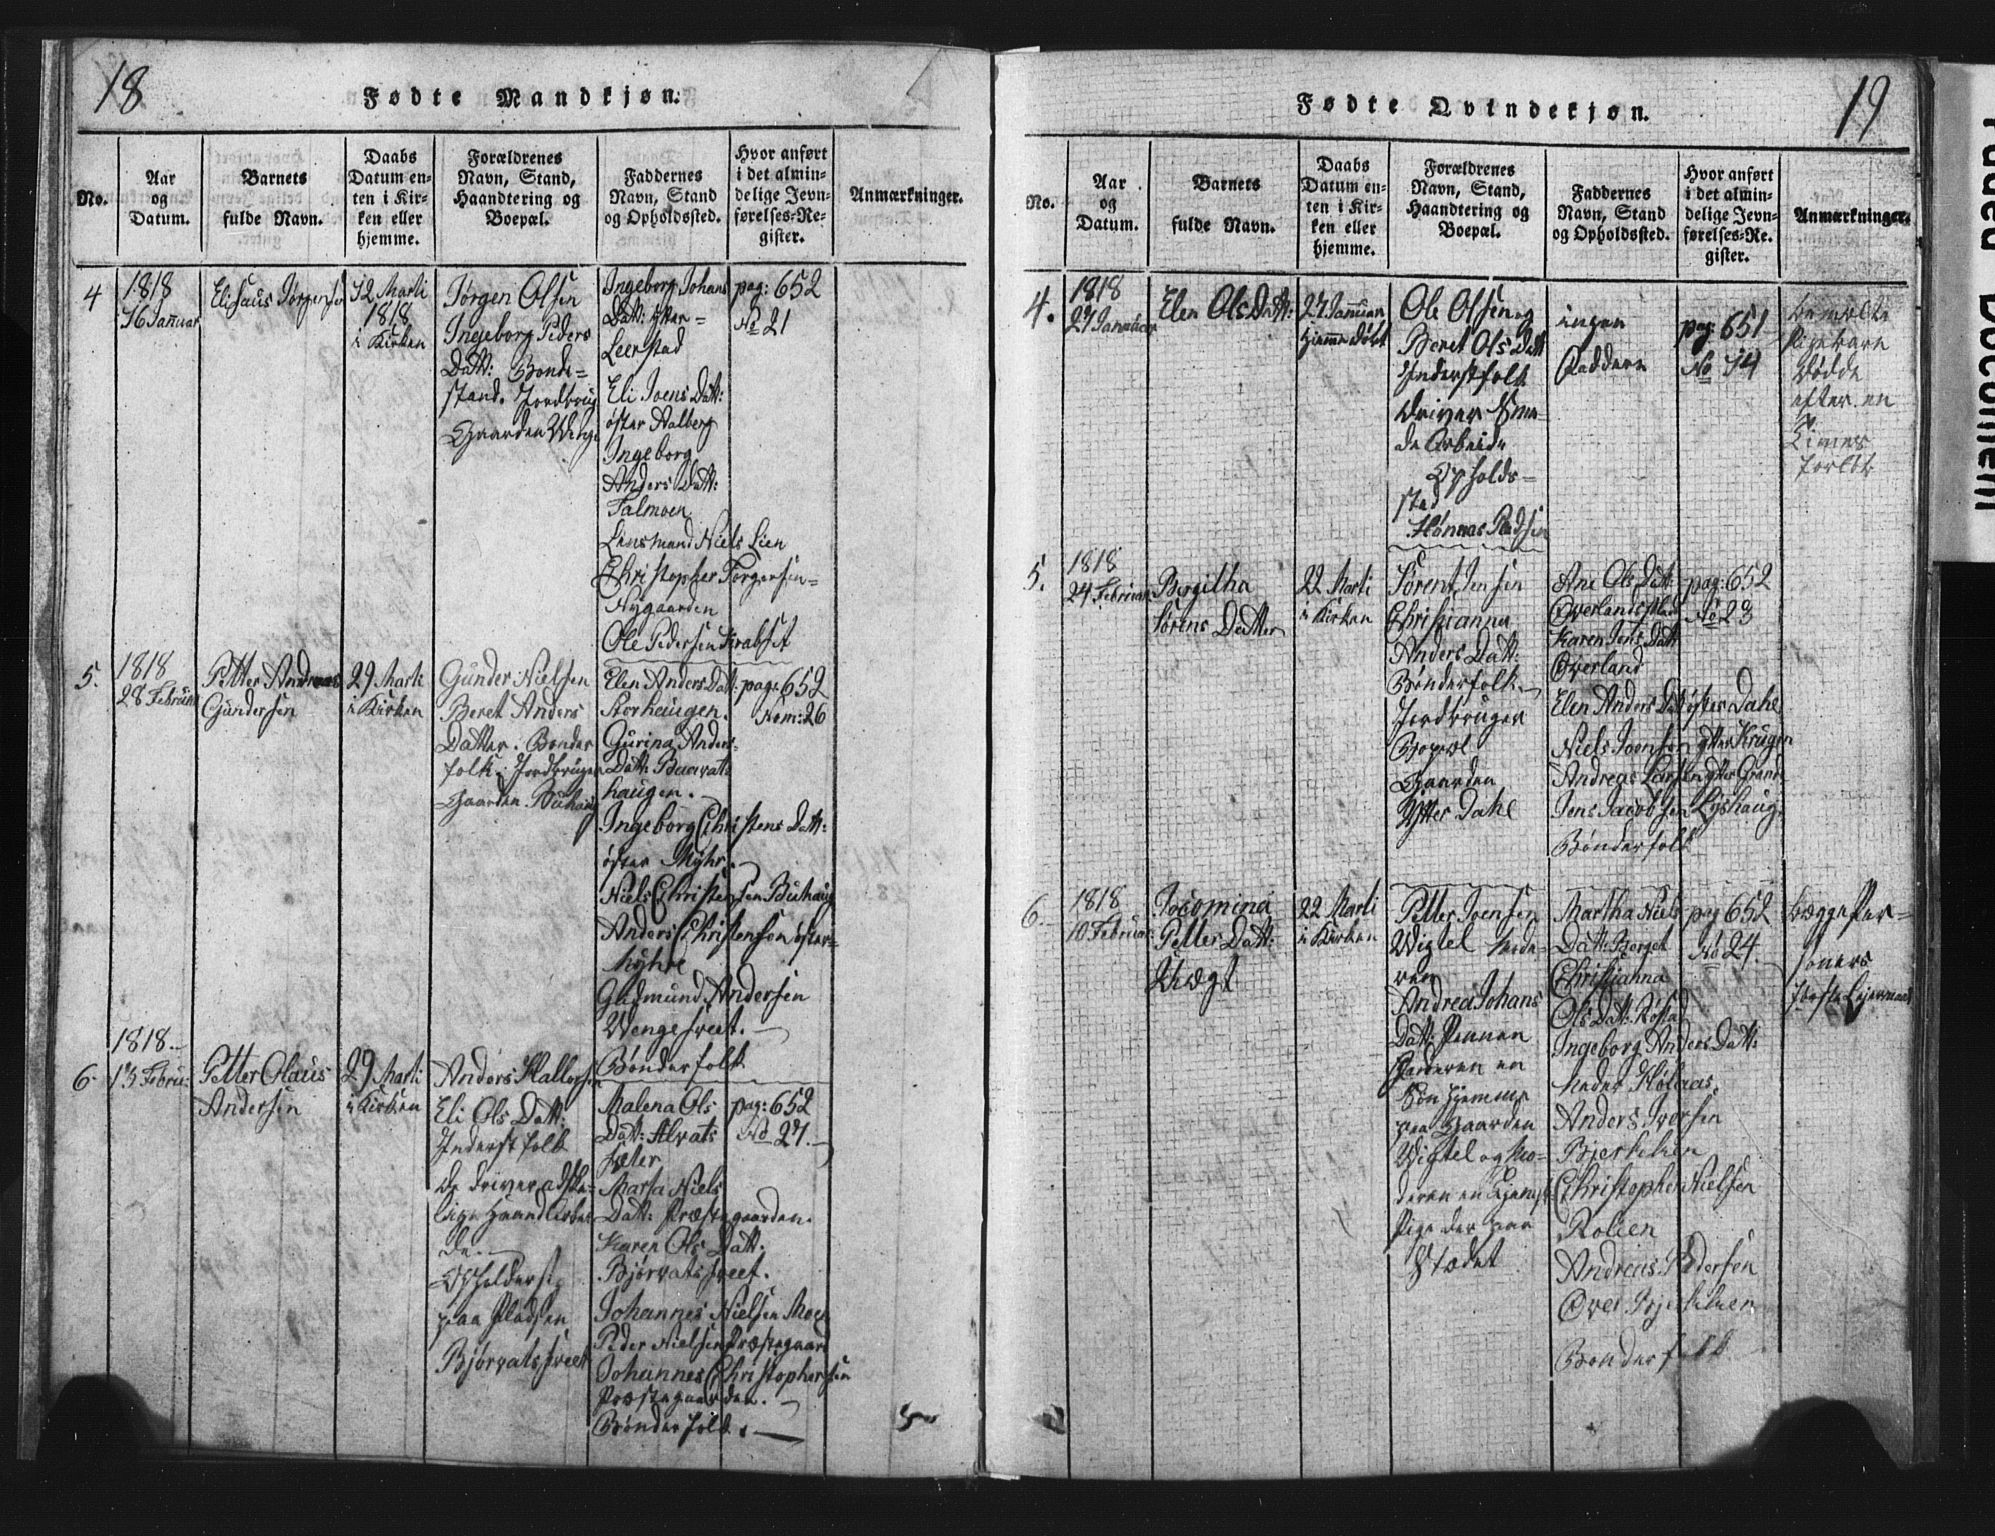 18
Fødte Mandkjøn.
No.
Aar
og
Datum.
Barnets
fulde Navn.
Daabs
Datum en-
ten i Kir-
ken eller
hjemme.
Forældrenes
Navn, Stand,
Haandtering og
Boepæl.
Faddernes
Navn, Stand
og Opholdssted.
Hvor anført
i det almin-
delige Jevn-
førelses-Re-
gister.
Anmærkninger.
4
1818
16 Januar
Elisæus Jørgensen
12 Marti
1818
i Kirken
Jørgen Olsen
Ingeborg Peders
Datt: Bonde-
stand. Jordbrug
Gaarden Wenge
Ingeborg Johans
Datt: ytter-
Leerstad
Eli Joens Datt:
øster Aalberg
Ingeborg
Anders Datt:
Talmoen
Lensmand Niels Lien
Christopher Torgersen-
Nygaarden
Ole Pedersen Krabset
pag: 652
No 21
5.
1818
28 Februar
Petter Andreas
Gundersen
29 Marti
i Kirken
Gunder Nielsen
Beret Anders
Datter. Bønder
folk. Jordbruger
Gaarden Buhaug
Elen Anders Datt:
Storhaugen.
Gurina Anders-
Datt:
haugen.
Ingeborg Christens Datt:
øster Myhr.
Niels Christensen Buhaug
Anders Christensen øster-
Myhre
Gudmund Andersen
Wengesveet.
Bønderfolk
pag: 652
Nom: 26
6.
1818
13 Febru:
Petter Olaus
Andersen
29 Marti
i Kirken
Anders Hallorsen
Eli Ols Datt:
Inderstfolk
de driver adskil-
lige Haandarbei-
de.
Opholdsst.
paa Pladsen
Bjørvatssveet
Malena Ols
Datt: Alvats
sæter
Marta Niels
Datt: Præstegaarden.
Karen Ols Datt.
Bjørvatssveet.
Johannes Nielsen Moen
Peder Nielsen Præstegaard
Johannes Christophersen
Præstegaarden.
Bønderfolk.
pag: 652
No 27.
19
Fødte Qvindekjøn.
No.
Aar
og
Datum.
Barnets
fulde Navn.
Daabs
Datum en-
ten i Kir-
ken eller
hjemme.
Forældrenes
Navn, Stand,
Haandtering og
Boepæl.
Faddernes
Navn, Stand
og Opholdssted.
Hvor anført
i det almin-
delige Jevn-
førelses-Re-
gister.
Anmærkninger.
4.
1818
27 Januar
Elen Ols Datt:
27 Januar
hjemmedøbt
Ole Olsen og
Beret Ols Datt
Inderstfolk
driver Sma-
de Arbeide
Opholds-
sted
Hønnæs Pladsen
ingen
Faddere
pag: 651
No 14
bemelte
Pigebarn
Dødde
efter en
Times
forløb
5.
1818
24 Februar
Bergitha
Sørens Datter
22 Marti
i Kirken
Sørent Jensen
Christianna
Anders Datt:
Bønderfolk
Jordbruger
Bopæl
Gaarden
Ytter Dahl
Ane Ols Datt:
Overlandsplad
Karen Jens Datt
Overland
Elen Anders Datt øster Dahl
Niels Joensen ytter Krugen
Andreas Larsen ytter
Jens Jacobsen Lyshaug
Bønderfolk
pag: 652
No 23
6.
1818
10 Februar
Jocomina
Petters Datt:
Uægt
22 Marti
i Kirken
Petter Joensen
Wigtel
Andrea Johans
Datt:
Faderen en
Søn hjemme
paa Gaarden
Wigtel og Mo-
deren en tjenest
Pige der paa
Stædet
Martha Niels
Datt: Berget
Christianna
Ols Datt: Røstad
Ingeborg Anders Datt:
neder Hølnæs.
Anders Iversen
Bjerkhen
Christopher Nielsen
Rolien
Andreas Pedersen
Over Bjerkhen
Bønderfolk
pag 652
No 24.
begge Per-
soners
første Leiermaal